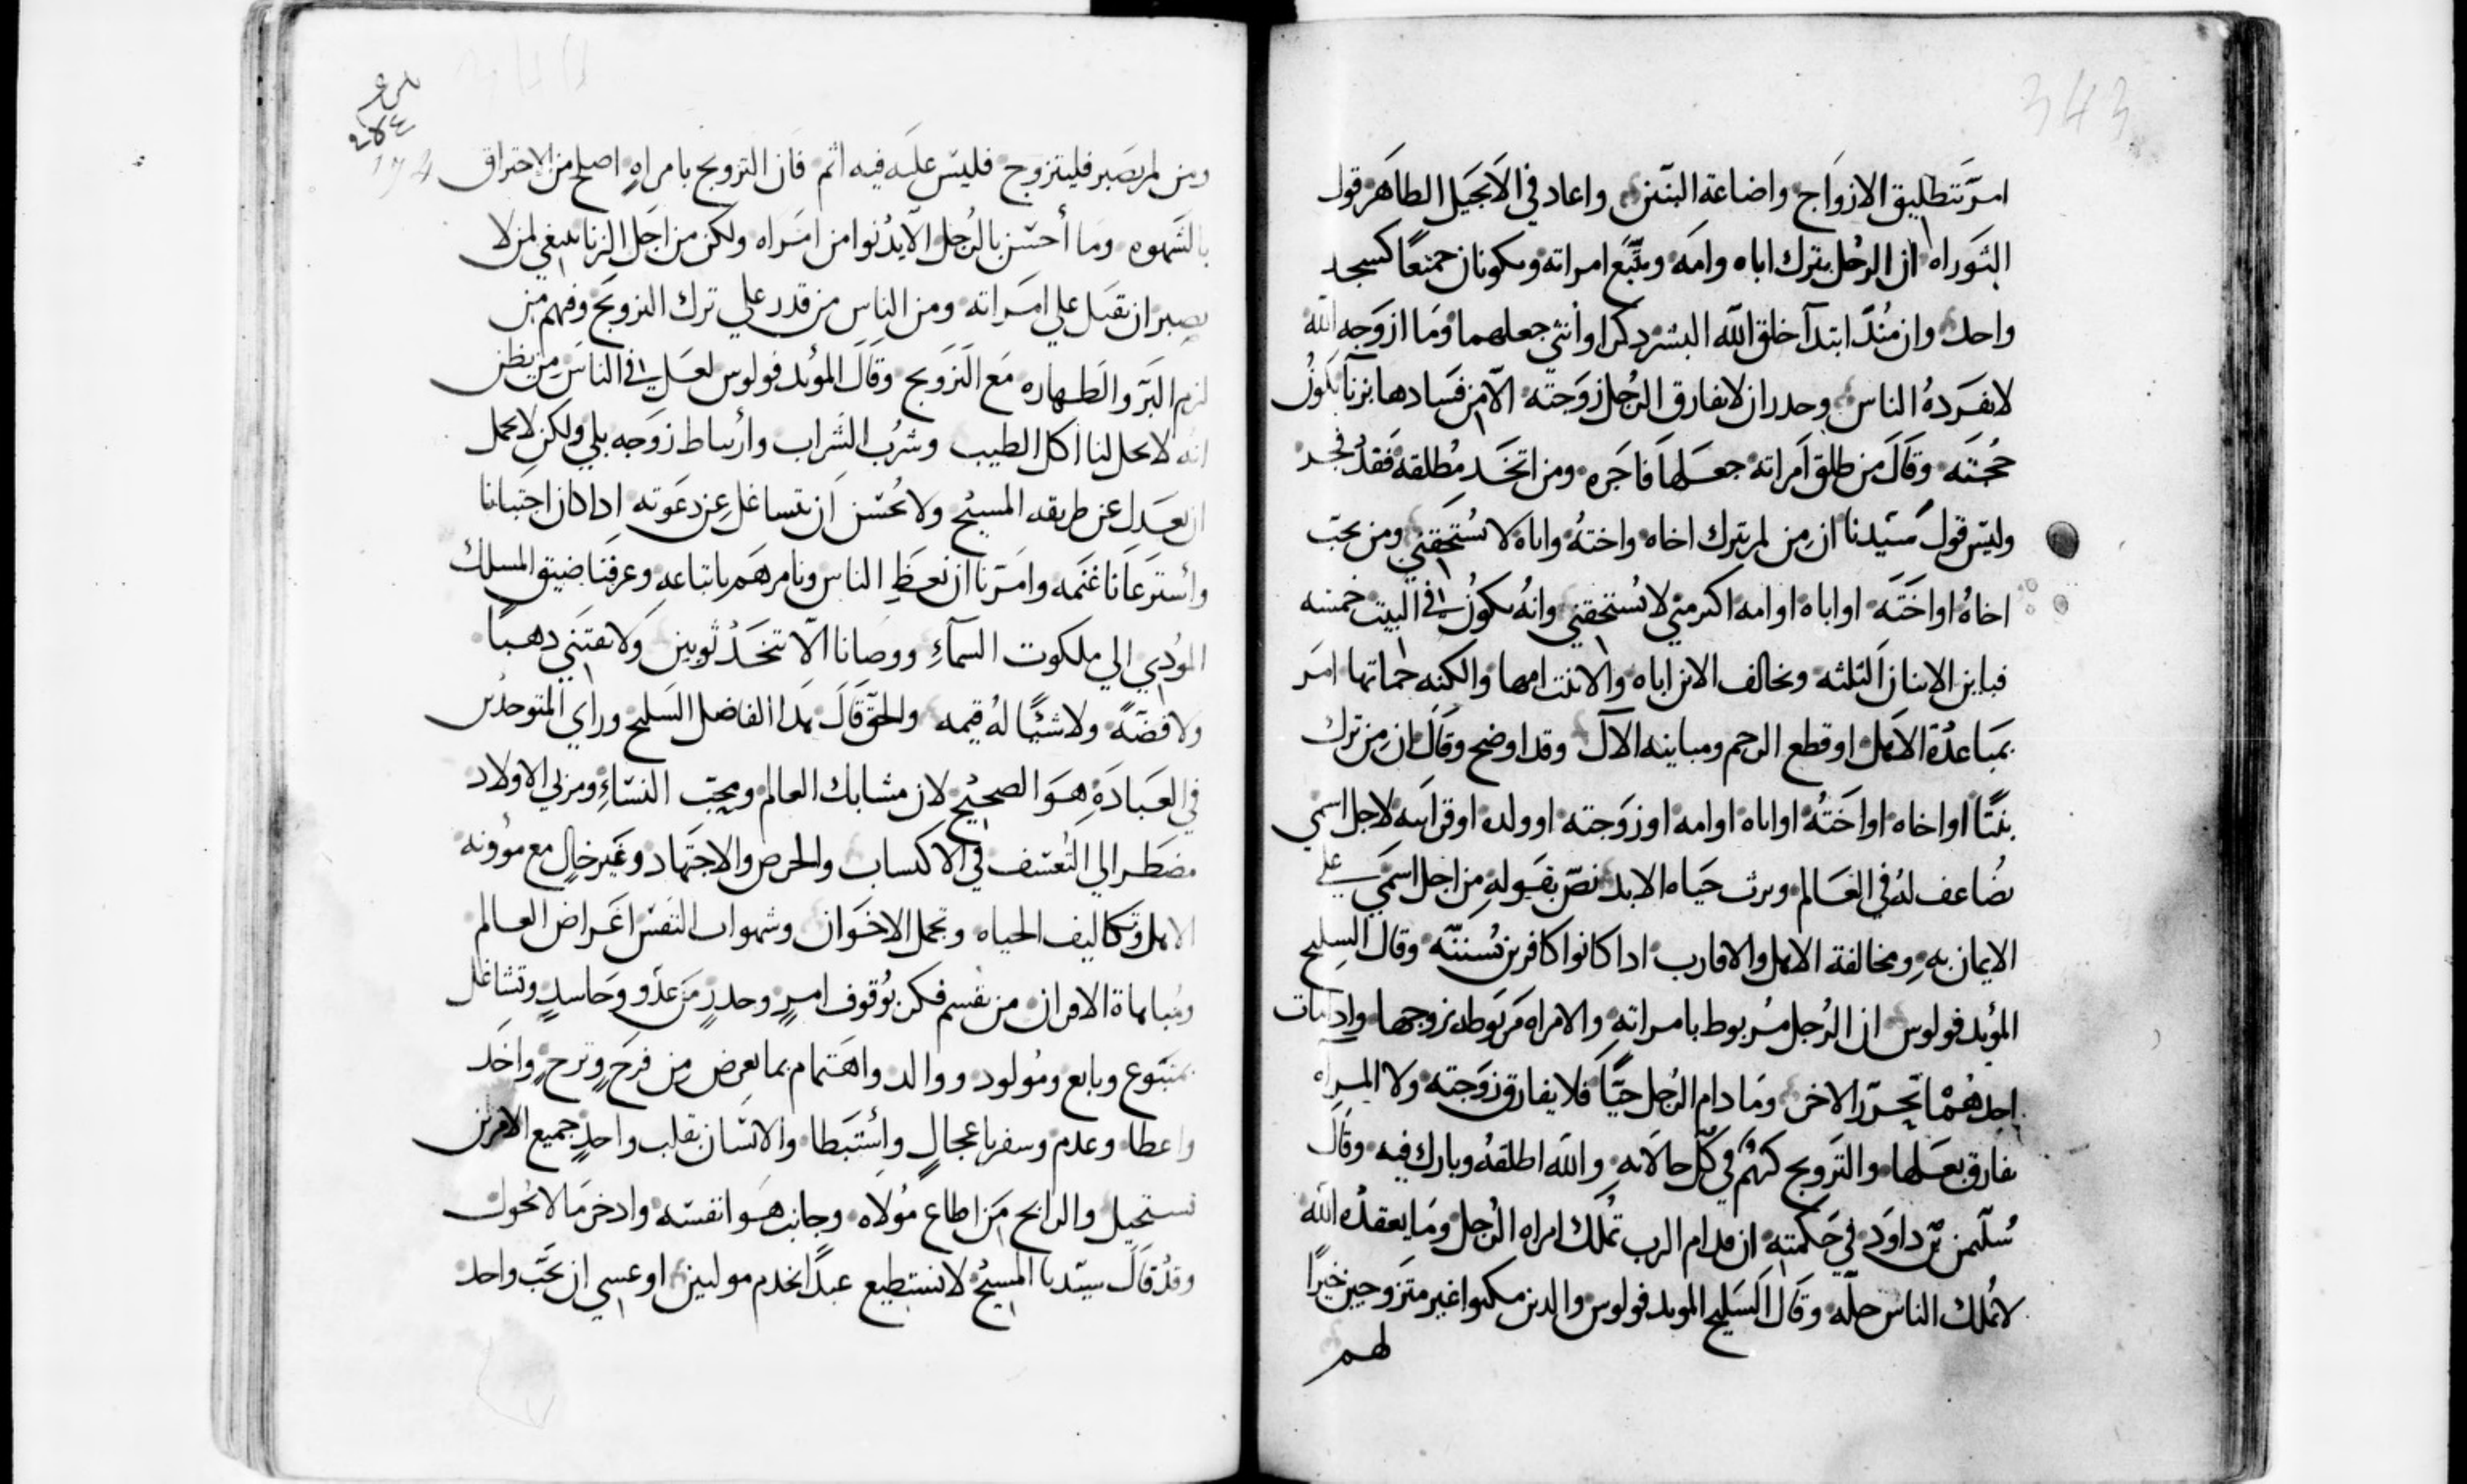 343
امرَ بتطليق الازواج واضاعة البنين واعاد في الانجيل الطاهر قول
التوراه ان الرجل يترك اباه وامه ويتبع امراته ويكونان جميعًا كجسد
واحد وان منذ ابتدآ خلق الله البشر ذكرا وأنثي جعلهما وما ازوجه الله
لا يفرده الناس وحدر ان لا يفارق الرجل زوجته الا من فسادها بزنآ يكون
حجته وقال من طلق امراته جعلها فاجره ومن اتخد مطلقه فقد فجر
وليس قول سيدنا ان من لم يترك اخاه واخته واباه لا يستحقني ومن يحب
اخاه او اخته او اباه او امه اكثر مني لا يستحقني وانه يكون في البيت خمسه
فباين الاثنان الثلثه ويخالف الابن اباه والابنت امها والكنه حماتها امر
بمباعدة الاهل او قطع الرحم ومباينه الآل وقد اوضح وقال ان من ترك
بيتًا او اخاه او اخته او اباه او امه او زوجته او ولده او قرابته لاجل اسمي
يضاعف له في العالم ويرث حياه الابد نص بقوله من اجل اسمي علي
الايمان به ومخالفة الاهل والاقارب ادا كانوا كافرين بسننه وقال السليح
المؤيد فولوس ان الرجل مربوط بامراته والامراه مربوطه بزوجها وادا مات
احدهما تحرر الاخر وما دام الرجل حيًا فلا يفارق زوجته ولا المرآه
تفارق بعلها والتزويج كريم في كل حالاته والله اطلقه وبارك فيه وقال
سليمن بن داود في حكمته ان من قدام الرب تملك امراه الرجل وما يعقده الله
لا تملك الناس حله وقال السليح الموبد فولوس والدين مكبوا غير متزوجين خيرًا
لهم
ومن لم يصبر فليتزوج فليس عليه فيه اثم فان التزويج بامراه اصلح من الاحتراق
بالشهوه وما أحسن بالرجل الا يدنوا من امراه ولكن من اجل الزنا ينبغي لمن لا
يصبر ان يقبل علي امراته ومن الناس من قدر علي ترك التزويج وفيهم من
لزم البر والطهاره مع التزويج وقال المؤيد فولوس لعل في الناس من يظن
انه لا يحل لنا اكل الطيب وشرب الشراب وأرتباط زوجه بلي ولكن لا يجمل
ان نعدل عن طريقه المسيح ولا يحسن ان نتساغل عن دعوته ادا كان اجتبانا
وأسترعانا غنمه وامرنا ان نعظ الناس ونامرهم باتباعه وعرفنا ضيق المسلك
المؤدي الي ملكوت السمآء ووصانا الا نتخد ثوبين ولا نقتني دهبًا
ولا فضةً ولا شيًا له قيمه والحق قال هدا الفاضل السليح وراي المتوحدين
في العبادة هو الصحيح لان مشابك العالم ومحب النسآء ومربي الاولاد
مضطر الي التعسف في الاكتساب والحرص والاجتهاد وغير خال مع مؤونه
الاهل وتكاليف الحياه وتجمل الاخوان وشهوات النفس اغراض العالم
ومباهاة الاقران من نقسم فكر بوقوف امرٍ وحدرٍ من عدو وحاسدٍ وتشاغل
بمتبوع وبايع ومولود ووالد واهتمام بما يعرض من فرح وترح واخد
واعطا وعدم وسفر باعجالٍ واستبطا والانسان بقلب واحدٍ جميع الامرين
تستحيل والرابح من اطاع مولاه وجانب هوا نفسه وادخر ما لا يحول
وقد قال سيدنا المسيح لا تستطيع عبدًا يخدم موليين او عسي ان يحب واحد